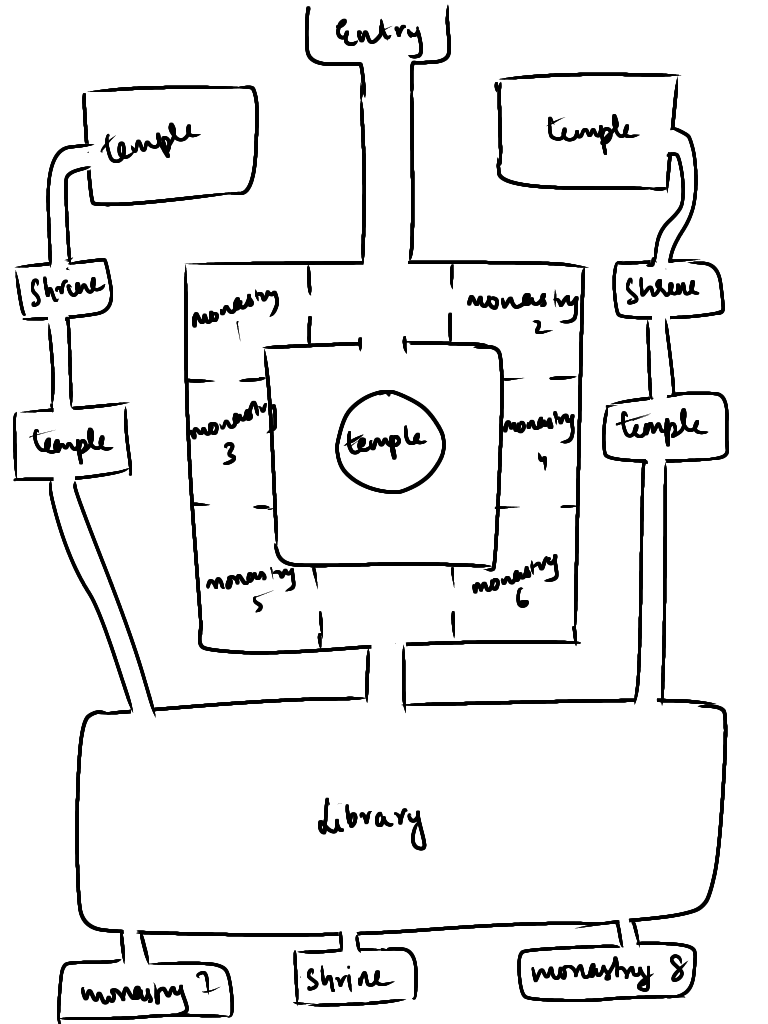 Entry
temple
temple
Shrine
monastry
1
monastry
2
Shrene
temple
monastry
3
temple
monastry
4
temple
monastry
5
monastry
6
Library
monastry 7
Shrine
monastry 8